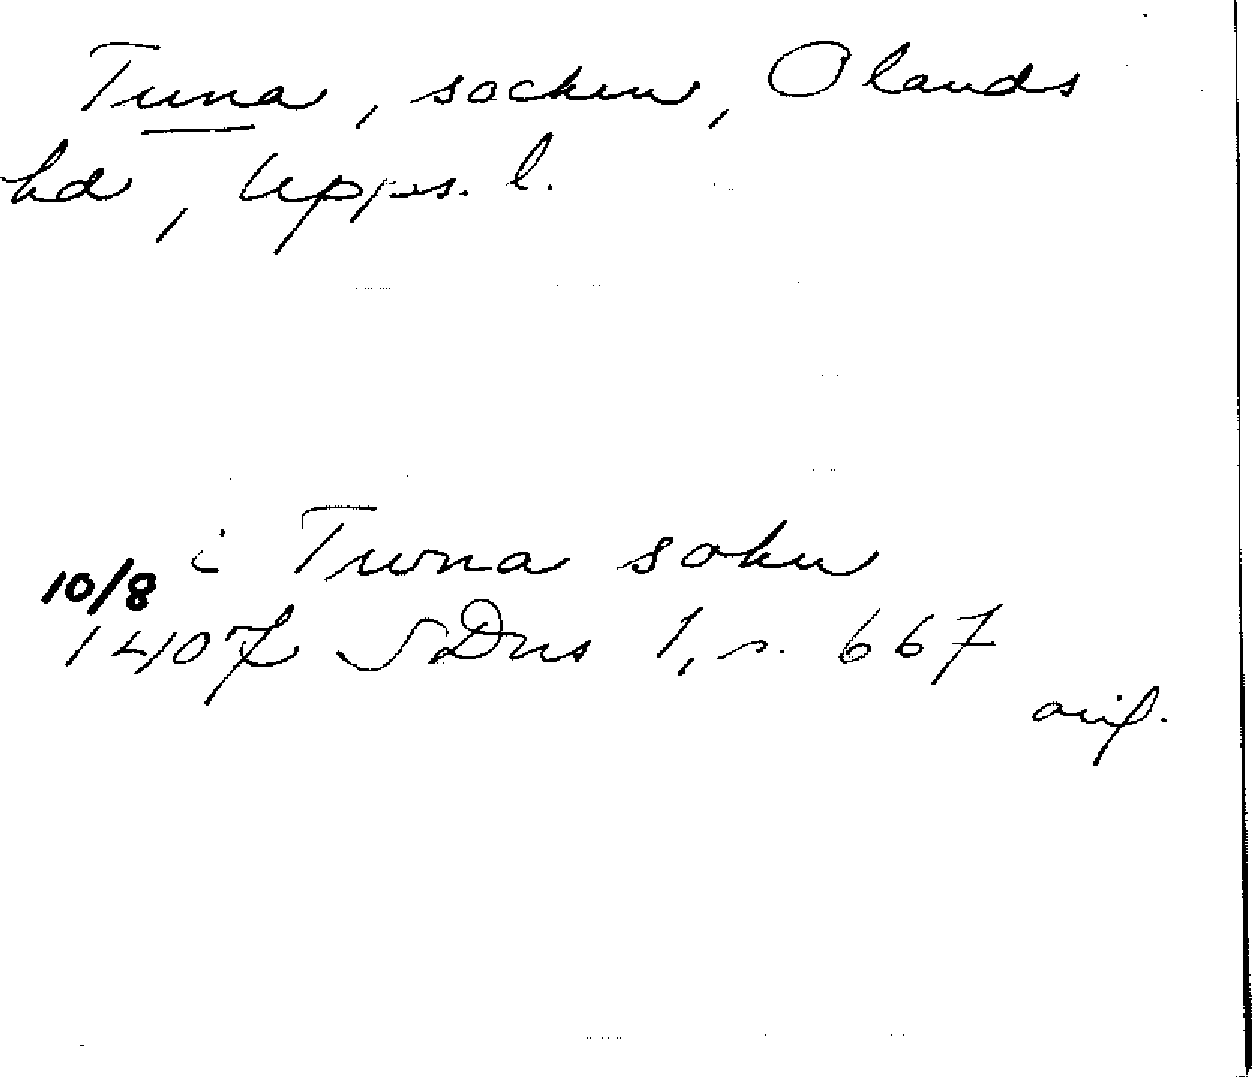 Tuna, socken, Olands
hd, Upps. l.
i Twna sokn
10/8
1407 SDns 1, s. 667
orig.